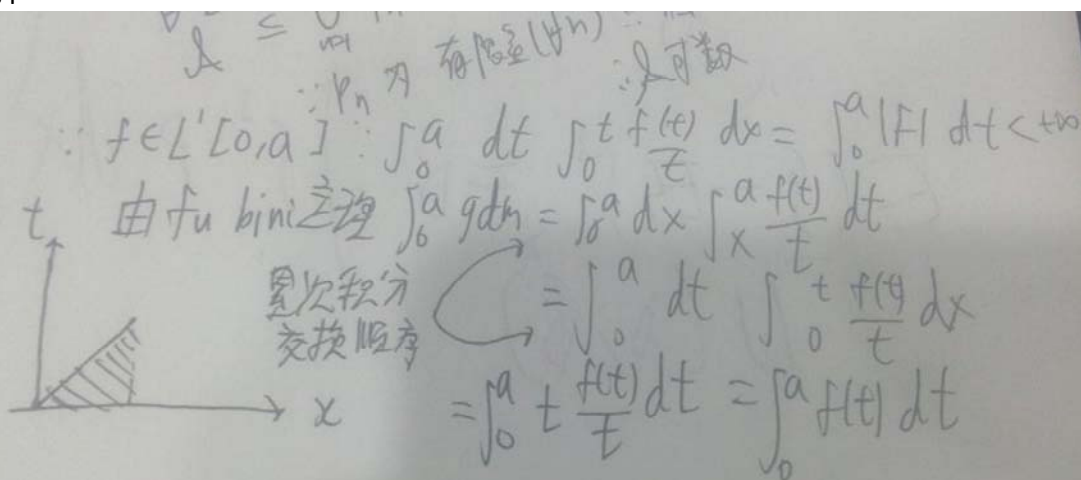 ≤ ∪
∵ Pn 为 有限集(∀n) ∴ 可数
∵ f∈L'[0,a] ∴ ∫₀ᵃ dt ∫₀ᵗ f(t)/t dx = ∫₀ᵃ |f| dt < +∞
t 由 fu bini 定理 ∫₀ᵃ gdm = ∫₀ᵃ dx ∫ₓᵃ f(t)/t dt
累次积分 = ∫₀ᵃ dt ∫₀ᵗ f(t)/t dx
交换顺序
x = ∫₀ᵃ t f(t)/t dt = ∫₀ᵃ f(t) dt